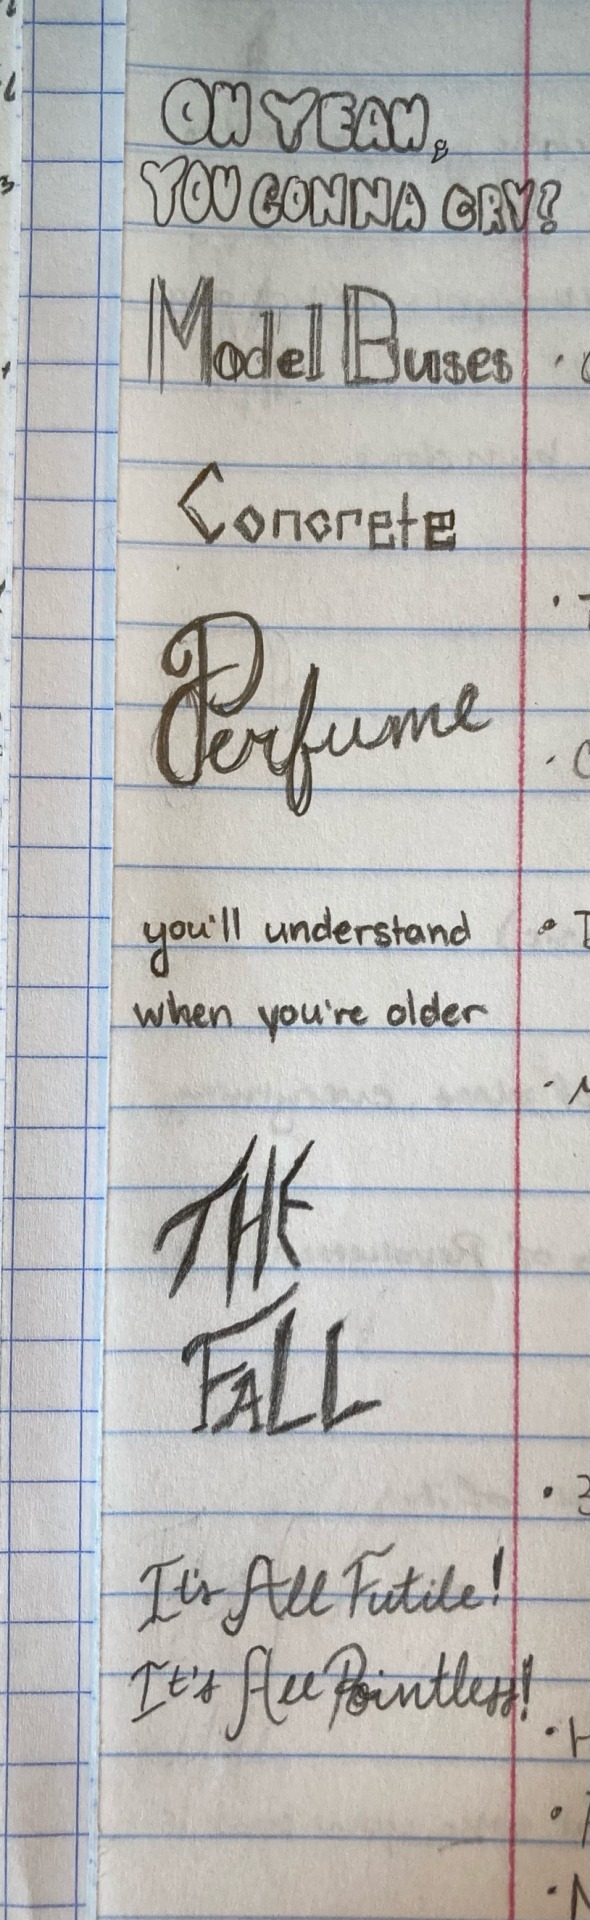 OH YEAH,
YOU GONNA CRY?
Model Buses
Concrete
Perfume
you'll understand
when you're older
THE
FALL
It's All Futile!
It's All Pointless!